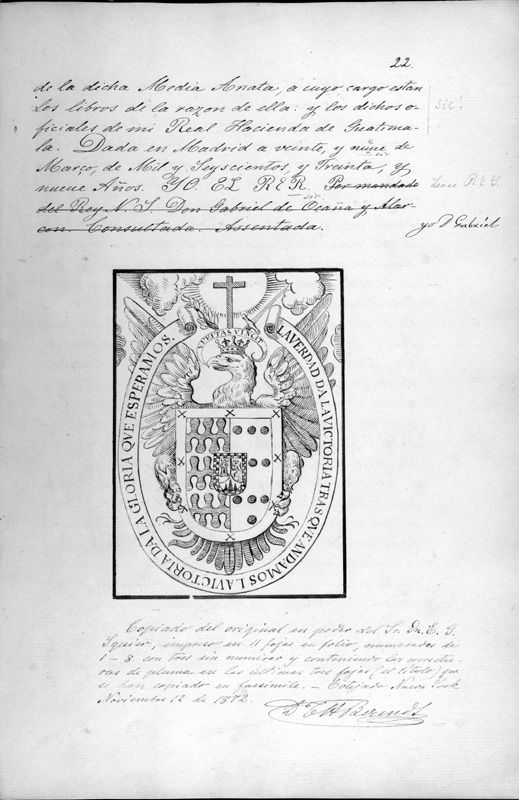 22.
de la dicha Media Anata, a cuyo cargo estan
los libros de la razon de ella: y los dichos o-
ficiales de mi Real Hacienda de Guatima-
la. Dada en Madrid a veinte, y nueue de
Março, de Mil y Seyscientos, y Treinta, y
nueue Años. YO EL RER. Por mandado
del Rey N. S. Don Gabriel de Ocaña y Alar-
con. Consultada. Assentada.
sic!
sic
sic
Lease REY.
yo D Gabriel
VERITAS VINCIT
LA VERDAD DA LA VICTORIA TRAS QUE ANDAMOS LA VICTORIA DA LA GLORIA QUE ESPERAMOS.
Copiado del original en poder del Sr. Dn. E. G.
Squier, impreso en 11 fojas en folio, numeradas de
1–8 con tres sin numerar y conteniendo las
de pluma en las ultimas tres fojas (el titulo) que
se han copiado en facsimile. – Cotejado Nueva York
Noviembre 12 de 1872.
D. C. H. Berendt